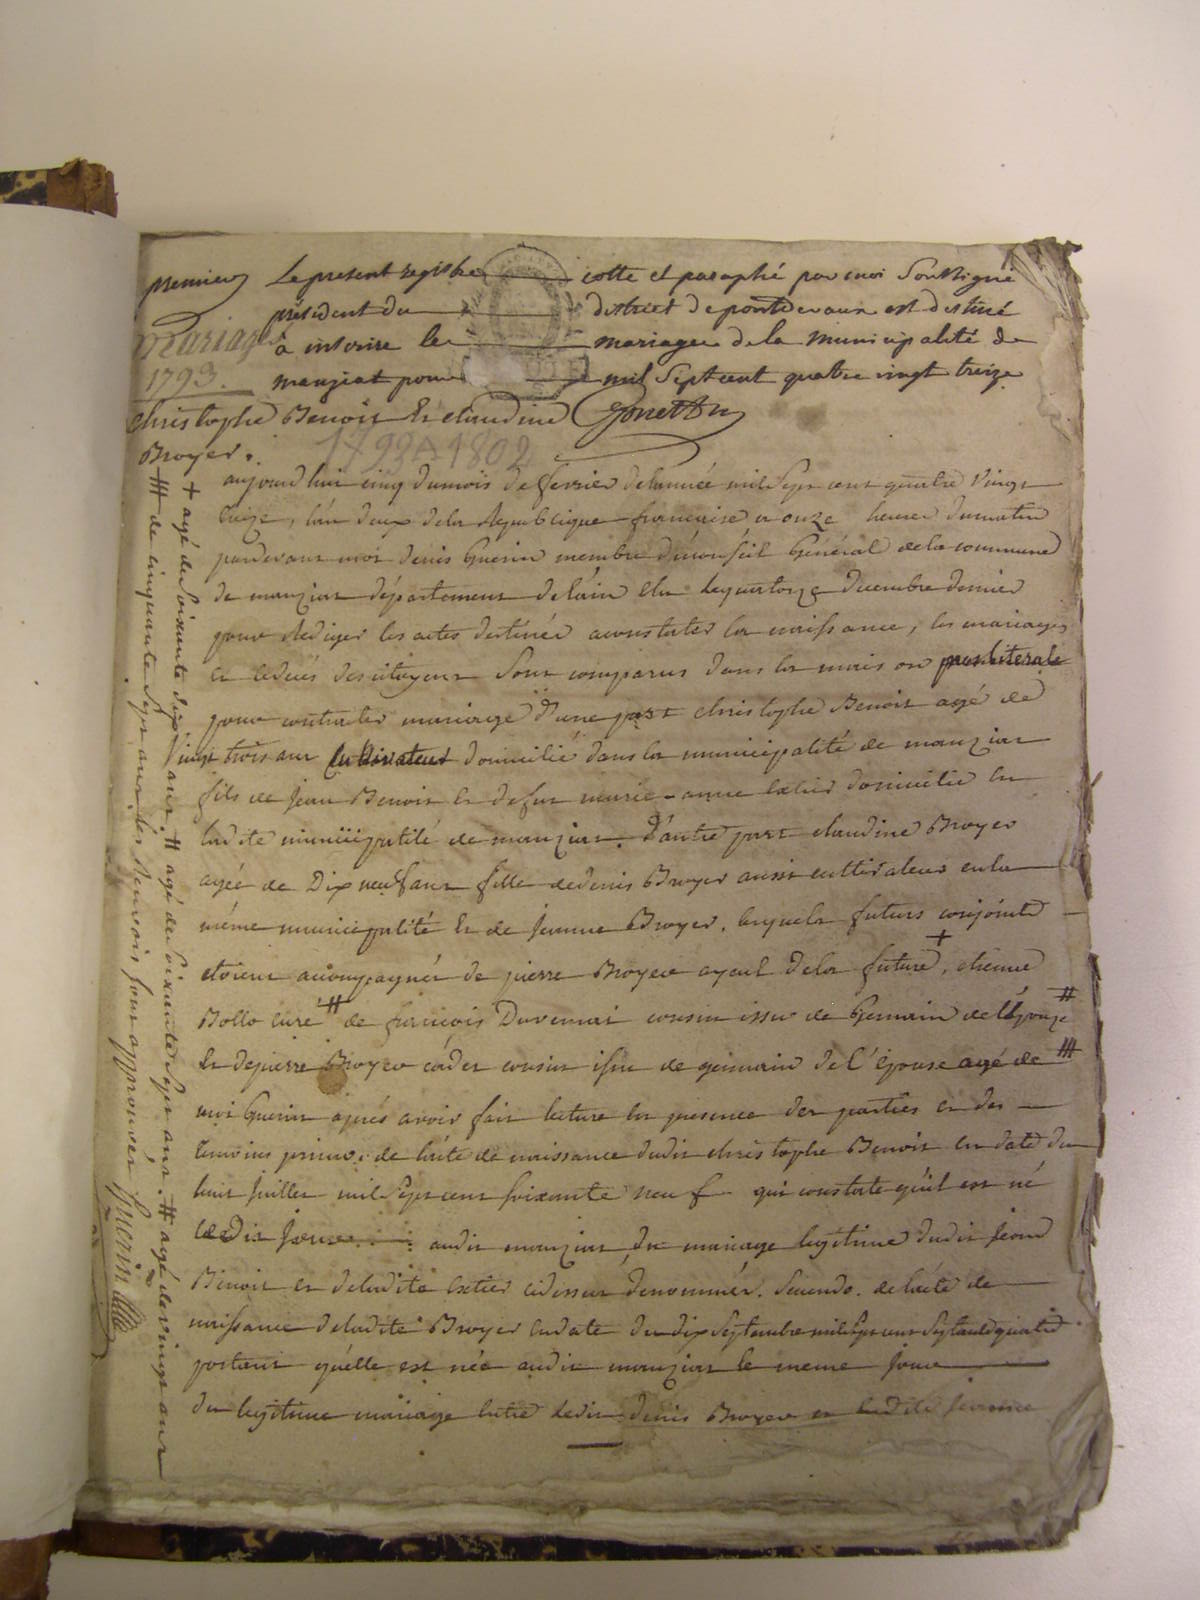 premier
Mariage
1793.
Le present registre cotte et paraphé par moi Soussigné
président du district de pontdevaux est destiné
à inscrire les mariages de la municipalité de
manziat pour mil Sept cent quatre vingt treize
christophe Benoit Et claudine
Broyer.
Gonet
1793 à 1802
aujourd'hui cinq du mois de fevrier de l'année mil Sept cent quatre Vingt
treize, l'an deux de la Republique francaise a onze heures du matin
pardevant moi denis Guerin membre du conseil Général de la commune
de manziat département de l'ain elu le quatorze Decembre dernier
pour Rediger les actes destinés a constater la naissance, les mariages
et le décés des citoyens Sont comparus dans la maison presbiterale
pour contracter mariage D'une part christophe Benoit agé de
Vingt trois ans Cultivateur domicilié dans la municipalité de manziat
fils de Jean Benoit et de fut marie-anne domicilié en
ladite municipalité de manziat. D'autre part claudine Broyer
agée de Dix neuf ans fille de denis Broyer aussi cultivateur en la
même municipalité et de Jeanne Broyer. lesquels futurs conjoints
etoient accompagnés de pierre Broyer ayeul de la future +, etienne
Bollo curé # de francois Duvernai cousin issu de Germain de l'épouse #
et de pierre Broyer cousin issu de germain de l'épouse agé de #
moi Guerin aprés avoir fait lecture en presence des parties et des
temoins primo. de l'acte de naissance dudit christophe Benoit en date du
huit Juillet mil Sept cent soixante neuf qui constate qu'il est né
ledit Jour audit manziat du mariage legitime dudit Jean
Benoit et de ladite cidessus dénommés. Secundo. de l'acte de
naissance de ladite Broyer en date du dix Septembre mil Sept cent Septante quatre
portant qu'elle est née audit manziat le meme Jour
du legitime mariage entre ledit denis Broyer et ladite Jeanne
+ agé de Soixante dix ans. # agé de Soixante Sept ans. # agé de vingt ans
# de cinquante Sept ans. les Renvois sont approuvés Guerin